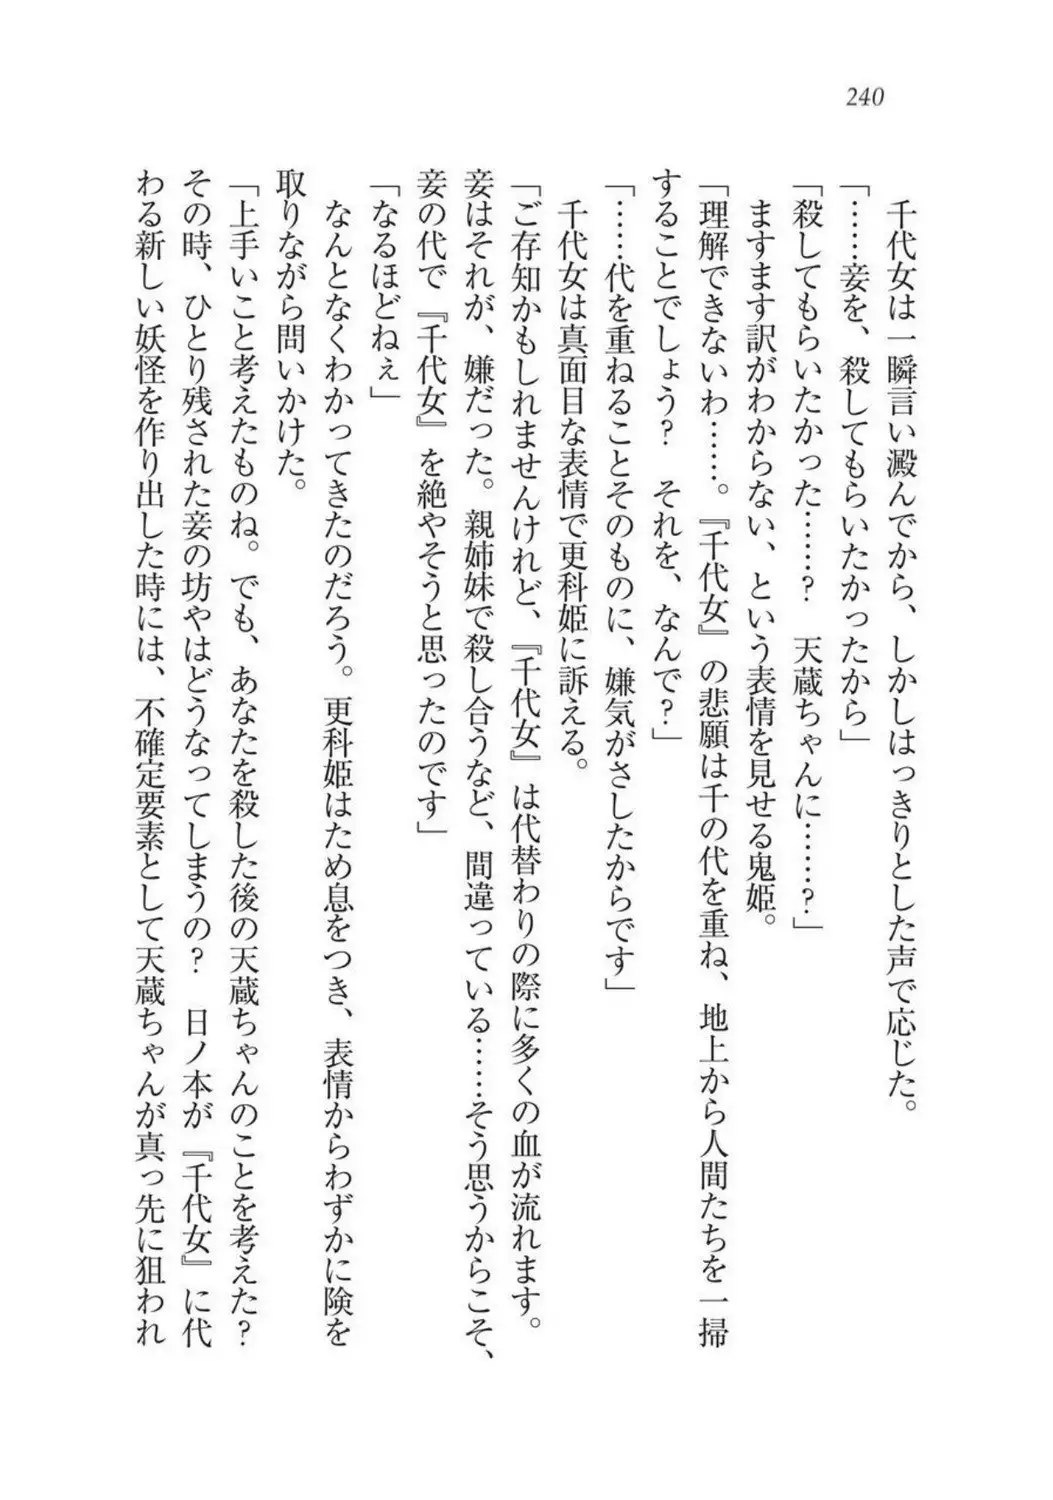 240
千代女は一瞬言い澱んでから、しかしはっきりとした声で応じた。
「……妾を、殺してもらいたかったから」
「殺してもらいたかった……？　天蔵ちゃんに……？」
ますます訳がわからない、という表情を見せる鬼姫。
「理解できないわ……。『千代女』の悲願は千の代を重ね、地上から人間たちを一掃
することでしょう？　それを、なんで？」
「……代を重ねることそのものに、嫌気がさしたからです」
千代女は真面目な表情で更科姫に訴える。
「ご存知かもしれませんけれど、『千代女』は代替わりの際に多くの血が流れます。
妾はそれが、嫌だった。親姉妹で殺し合うなど、間違っている……そう思うからこそ、
妾の代で『千代女』を絶やそうと思ったのです」
「なるほどねぇ」
なんとなくわかってきたのだろう。更科姫はため息をつき、表情からわずかに険を
取りながら問いかけた。
「上手いこと考えたものね。でも、あなたを殺した後の天蔵ちゃんのことを考えた？
その時、ひとり残された妾の坊やはどうなってしまうの？　日ノ本が『千代女』に代
わる新しい妖怪を作り出した時には、不確定要素として天蔵ちゃんが真っ先に狙われ